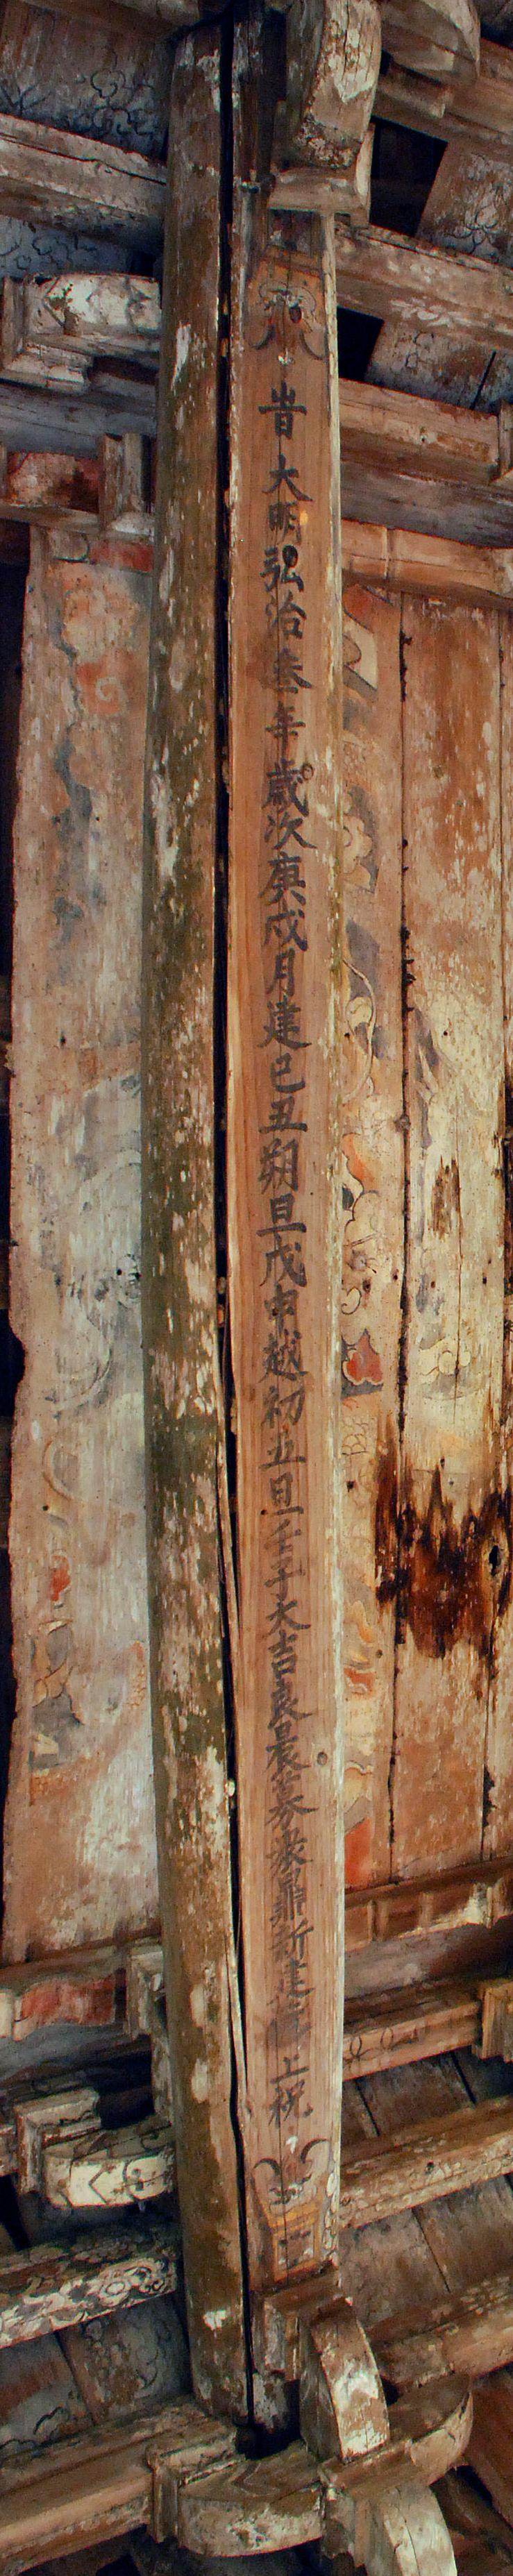 旹大明弘治叁年歲次庚戌月建己丑朔旦戊申越初五旦壬子大吉良晨募眾鼎新建 上祝